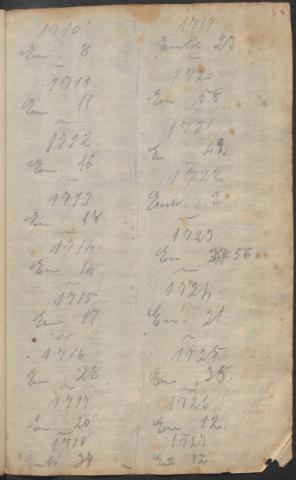 1710
Em 8
1711
Em 11
1712
Em 16
1713
Em 18
1714
Em 14
1715
Em 17
1716
Em 28
1717
Em 20
1718
39
1719
23
1720
Em 58
1721
Em 42
1722
3
1723
Em 56
1724
Em 21
1725
Em 38.
1726
Em 12.
1727
12